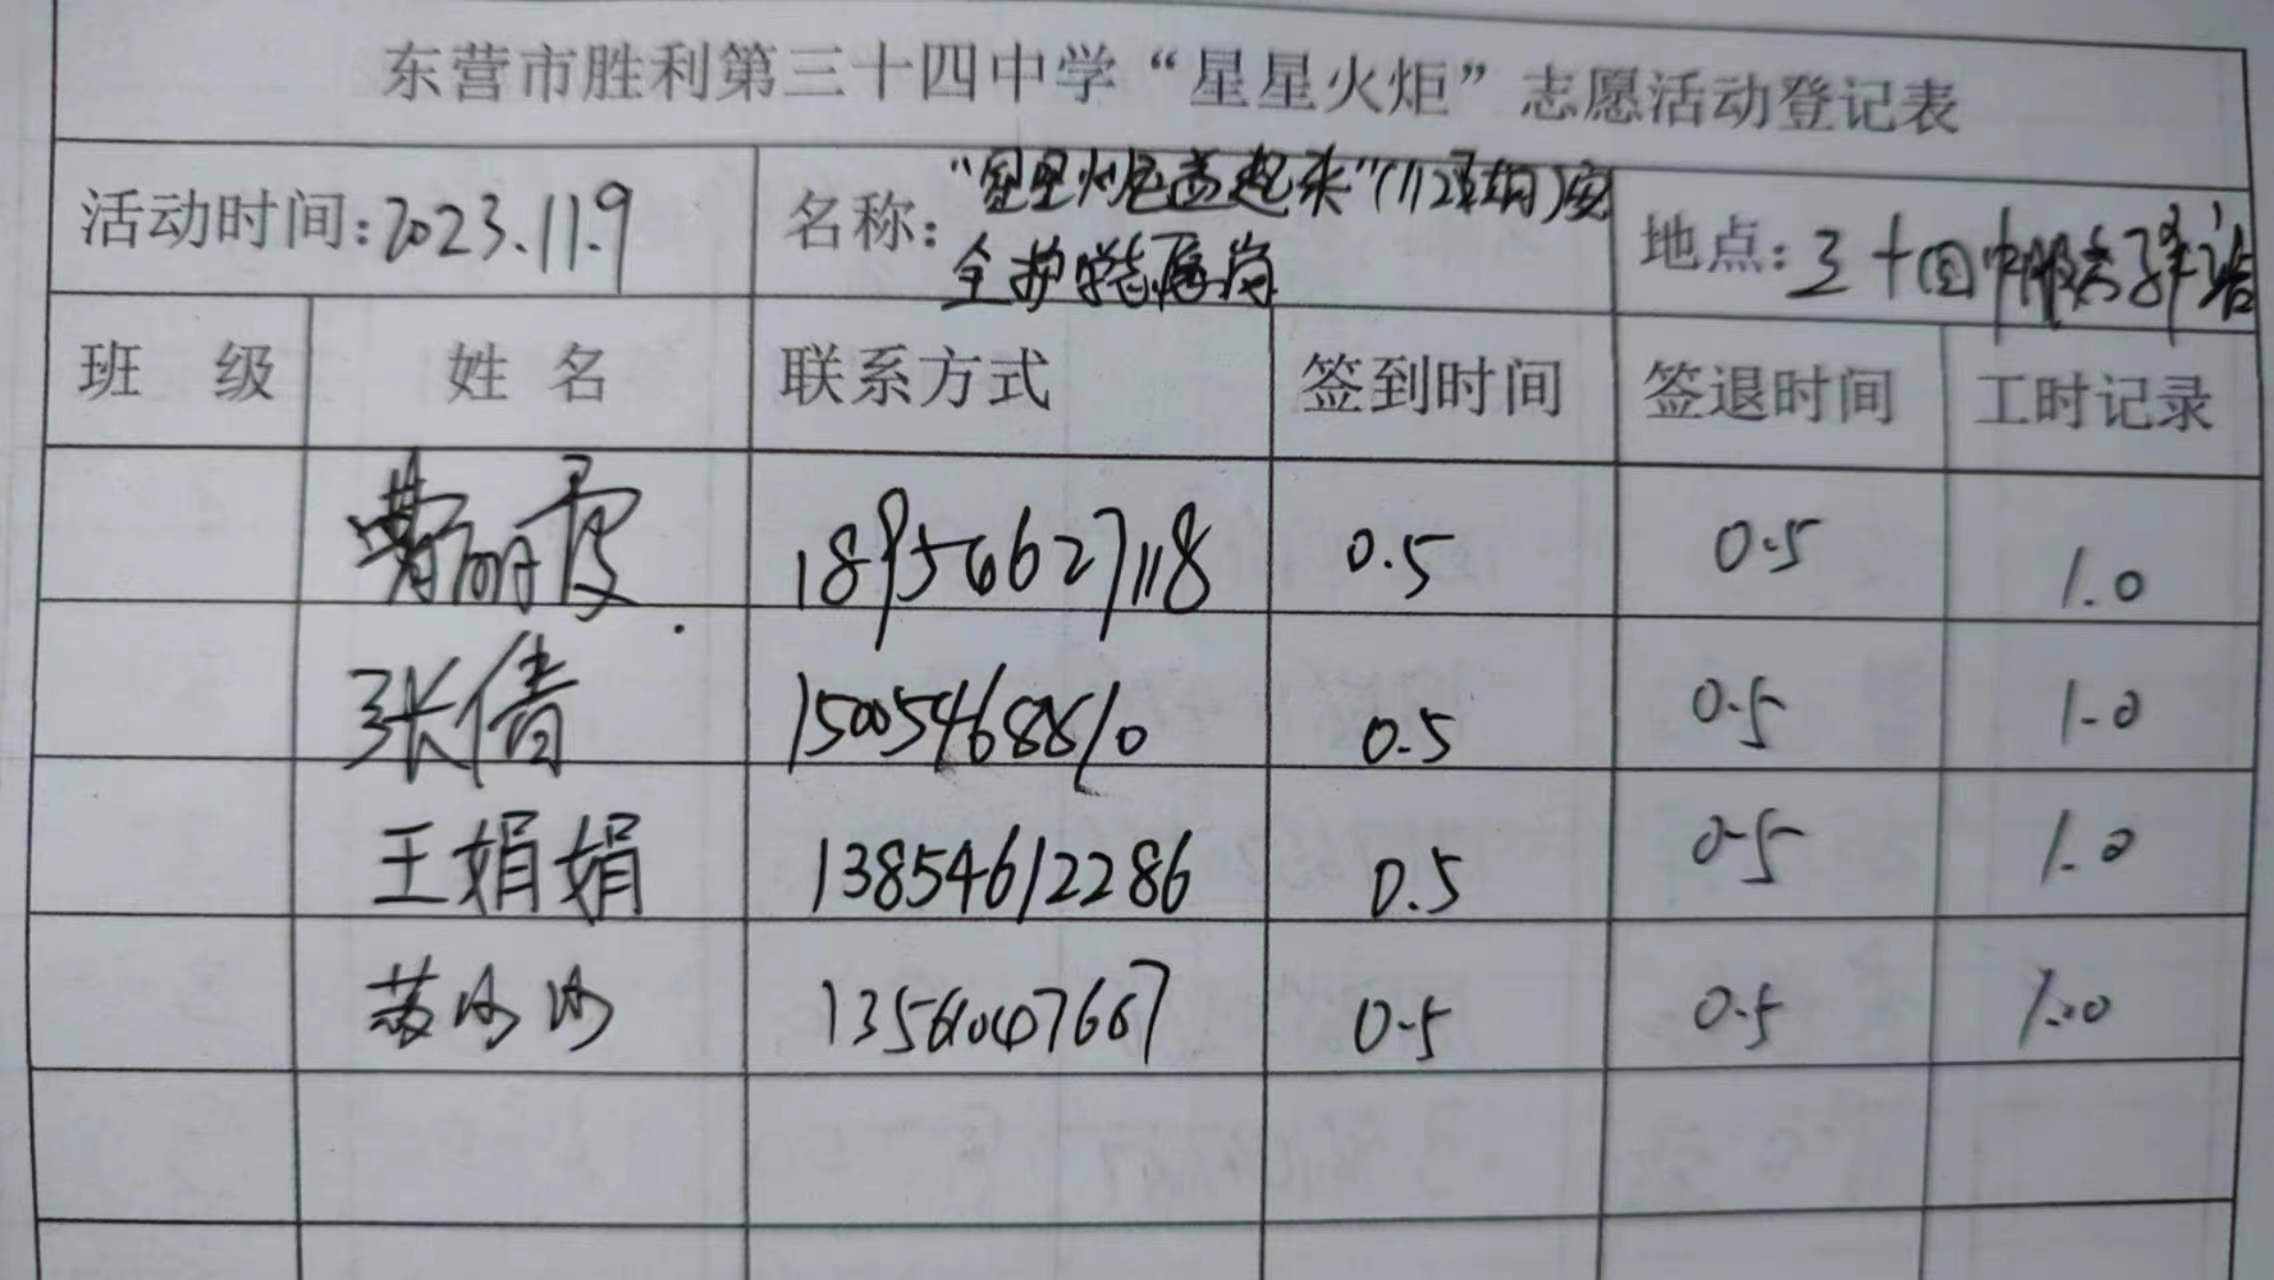 东营市胜利第三十四中学“星星火炬”志愿活动登记表
活动时间:2023.11.9 名称: “星星火炬益起来”(11 安
全护学志愿岗
地点: 三十四中服务驿站
班 级 姓 名 联系方式 签到时间 签退时间 工时记录
丽霞 18956627118 0.5 0.5 1.0
张倩 15005468810 0.5 0.5 1.0
王娟娟 13854612286 0.5 0.5 1.0
苏沙沙 0.5 0.5 1.0